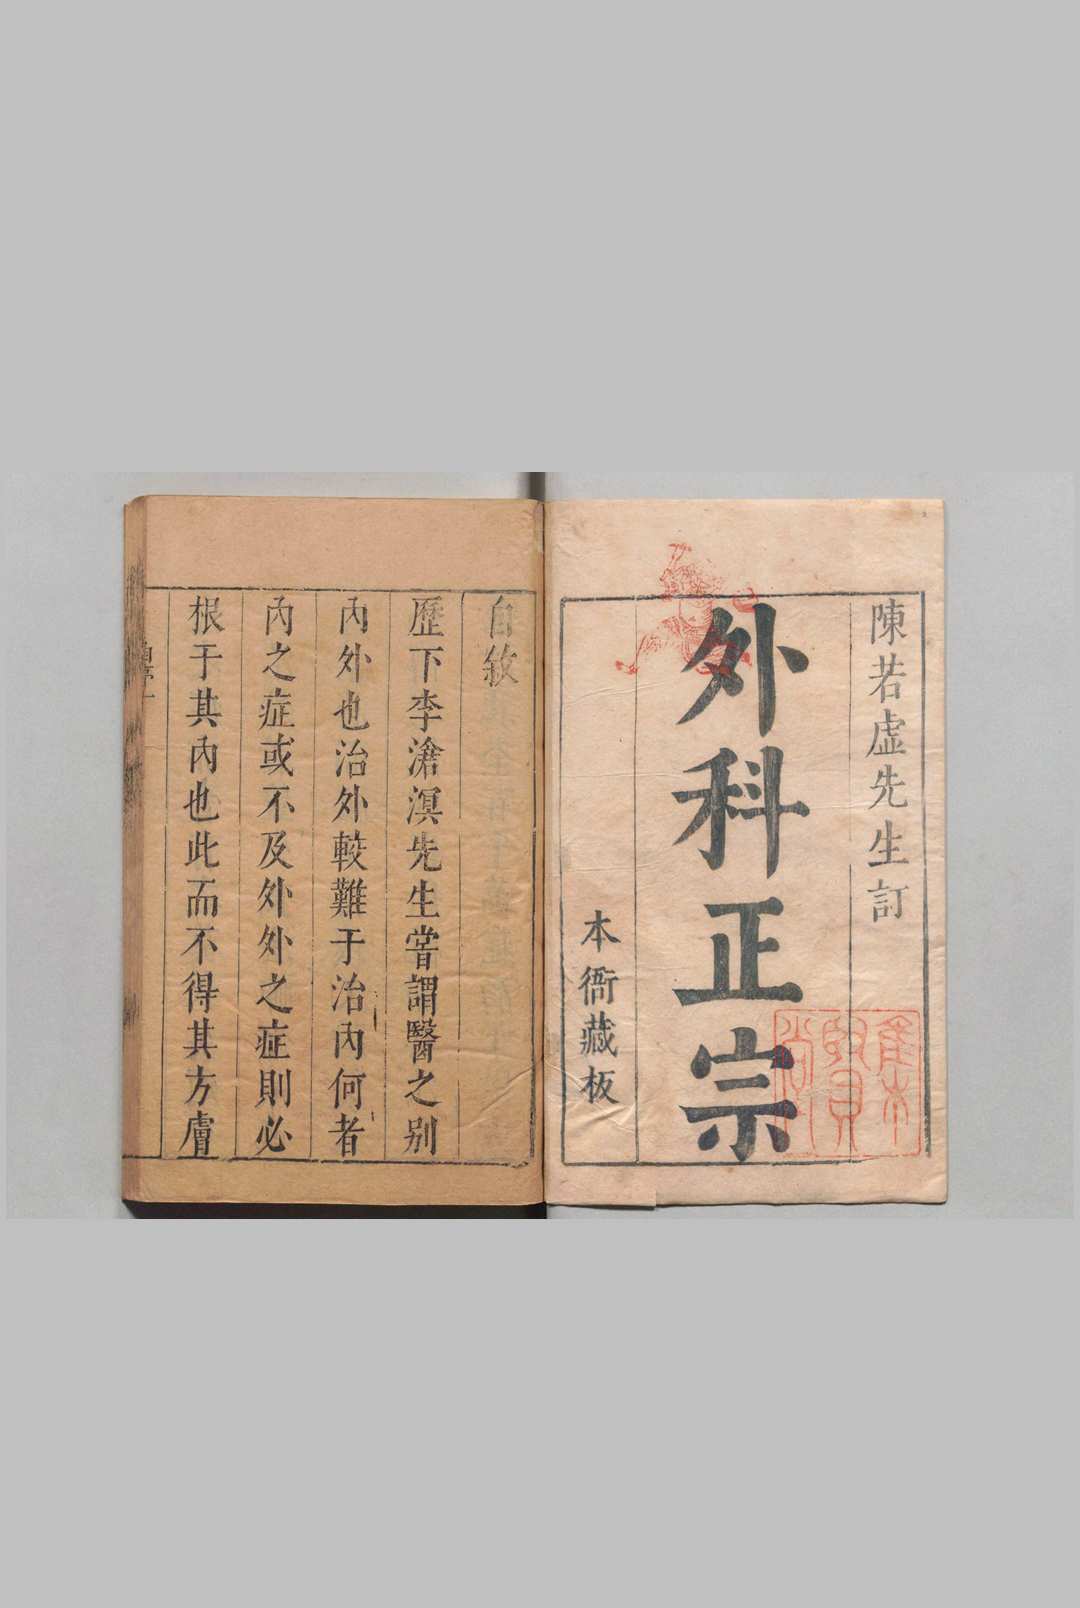 陳若虛先生訂
外科正宗
本衙藏板
自敘
歷下李滄溟先生嘗謂醫之別
內外也治外較難于治內何者
內之症或不及外外之症則必
根于其內也此而不得其方膚